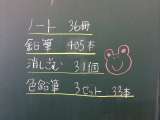 ノート 36冊
鉛筆 405本
消しゴム 31個
色鉛筆 3セット 33本